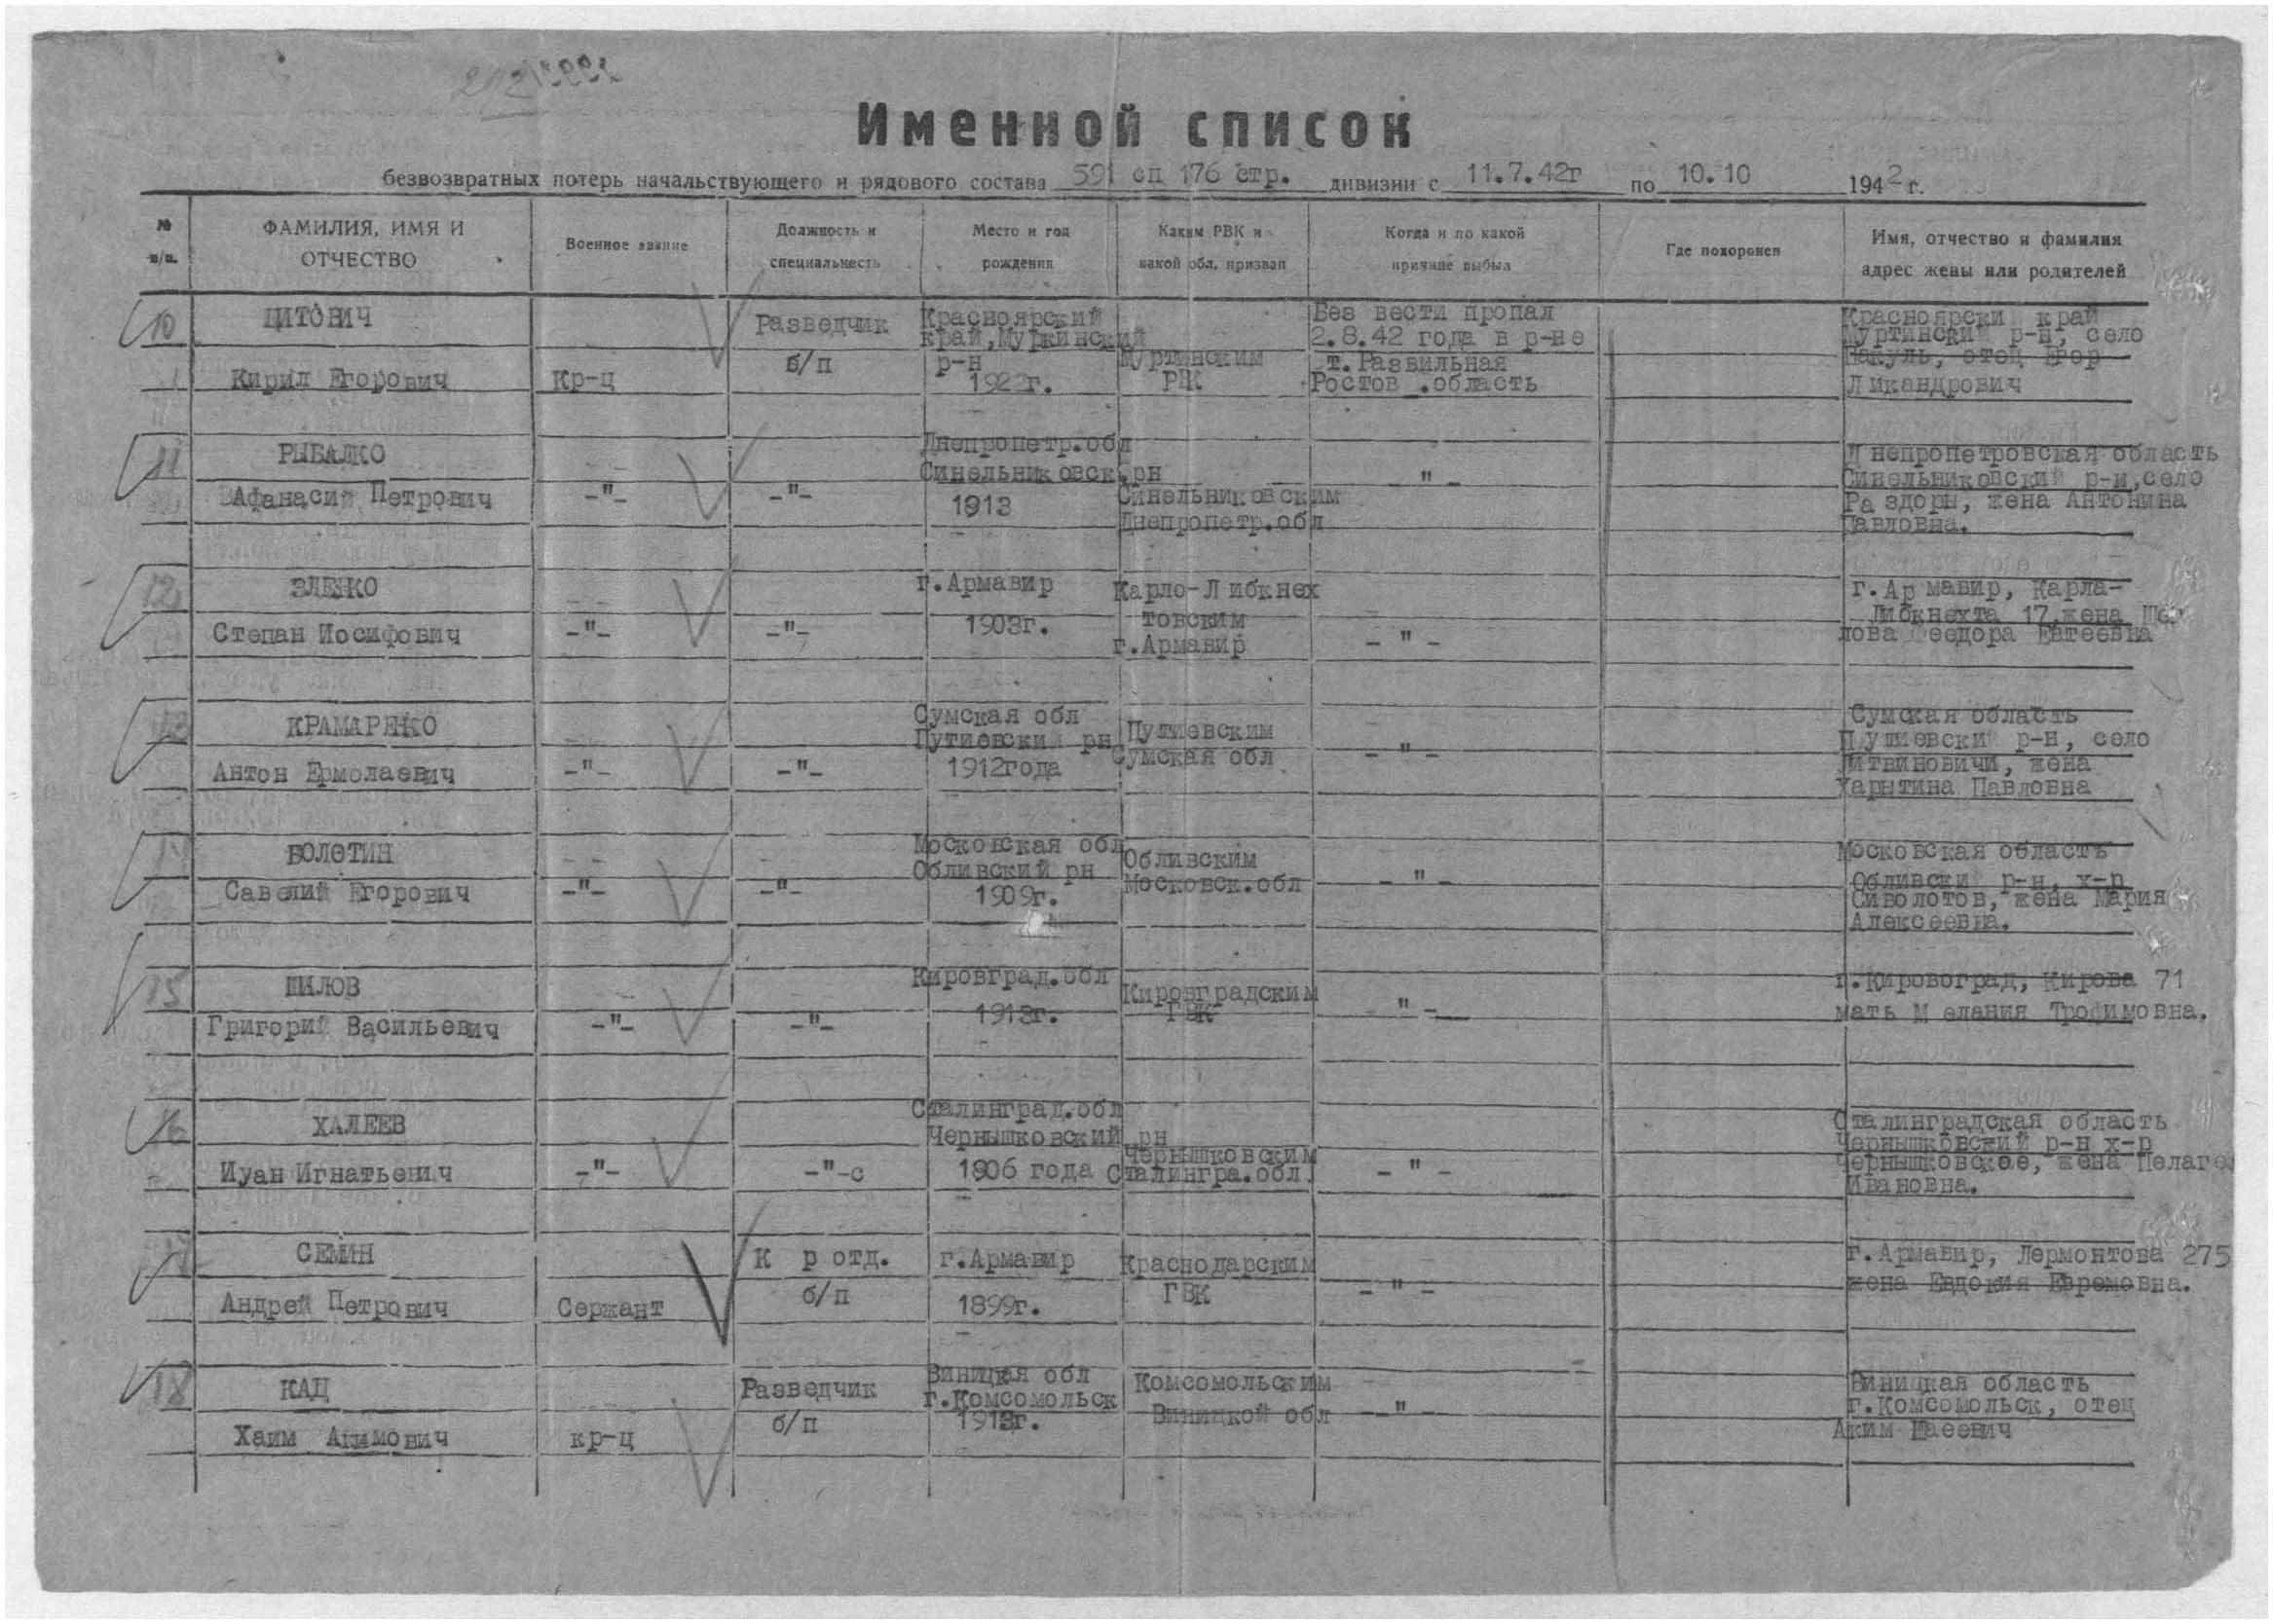 Именной список
безвозвратных потерь начальствующего и рядового состава 591 сп 176 стр. дивизии с 11.7.42г по 10.10 1942 г.
№ п/п.
ФАМИЛИЯ, ИМЯ И ОТЧЕСТВО
Военное звание
Должность и специальность
Место и год рождения
Каким РВК и какой обл. призван
Когда и по какой причине выбыл
Где похоронен
Имя, отчество и фамилия адрес жены или родителей
10
ЦИТОВИЧ
Кирил Егорович
Кр-ц
Разведчик
б/п
Красноярский
край, Муркинский
р-н
1922г.
Муртинским
РВК
Без вести пропал
2.8.42 года в р-не
т. Развильная
Ростов .область
Красноярски край
Муртински р-н, село
отец Егор
Ликандрович
11
РЫБАЛКО
Афанасий Петрович
-"-
-"-
Днепропетр.обл
Синельниковск.рн
1913
Синельниковским
Днепропетр.обл
" -
Днепропетровская область
Синельниковский р-н, село
Ра здоры, жена Антонина
Павловна.
12
ЗЛЕНКО
Степан Иосифович
-"-
-"-
г.Армавир
1903г.
Карло-Либкнех
товским
г.Армавир
- " -
г.Ар мавир, Карла-
Либкнехта 17, жена
лова Феодора Евтеевна
13
КРАМАРЕНКО
Антон Ермолаевич
-"-
-"-
Сумская обл
Путиевский рн
1912года
Путиевским
Сумская обл
- " -
Сумская область
Путиевски р-н, село
Литвиновичи, жена
Харытина Павловна
БОЛОТИН
Савелий Егорович
-"-
-"-
Московская обл
Обливский рн
1909г.
Обливским
Московск.обл
- " -
Московская область
Обливски р-н, х-р
Сиволотов, жена Мария
Алексеевна.
15
ШИЛОВ
Григорий Васильевич
-"-
-"-
Кировград.обл
1913г.
Кировградским
ГВК
" -
г.Кировоград, Кирова 71
мать М елания Трофимовна.
16
ХАЛЕЕВ
Иуан Игнатьевич
-"-
-"-с
Сталинград.обл
Чернышковский рн
1906 года
Чернышковским
Сталингра.обл.
- " -
Сталинградская область
Чернышковский р-н х-р
Чернышковское, жена Пелаге
Ивановна.
17
СЕМИН
Андрей Петрович
Сержант
К р отд.
б/п
г.Армавир
1899г.
Краснодарским
ГВК
- " -
г.Армавир, Лермонтова 275
жена Евдокия Ефремовна.
18
КАЦ
Хаим Акимович
кр-ц
Разведчик
б/п
Виницкая обл
г.Комсомольск
1913г.
Комсомольским
Виницкой обл
-"-
Виницкая область
г.Комсомольск, отец
Аким Шаеевич